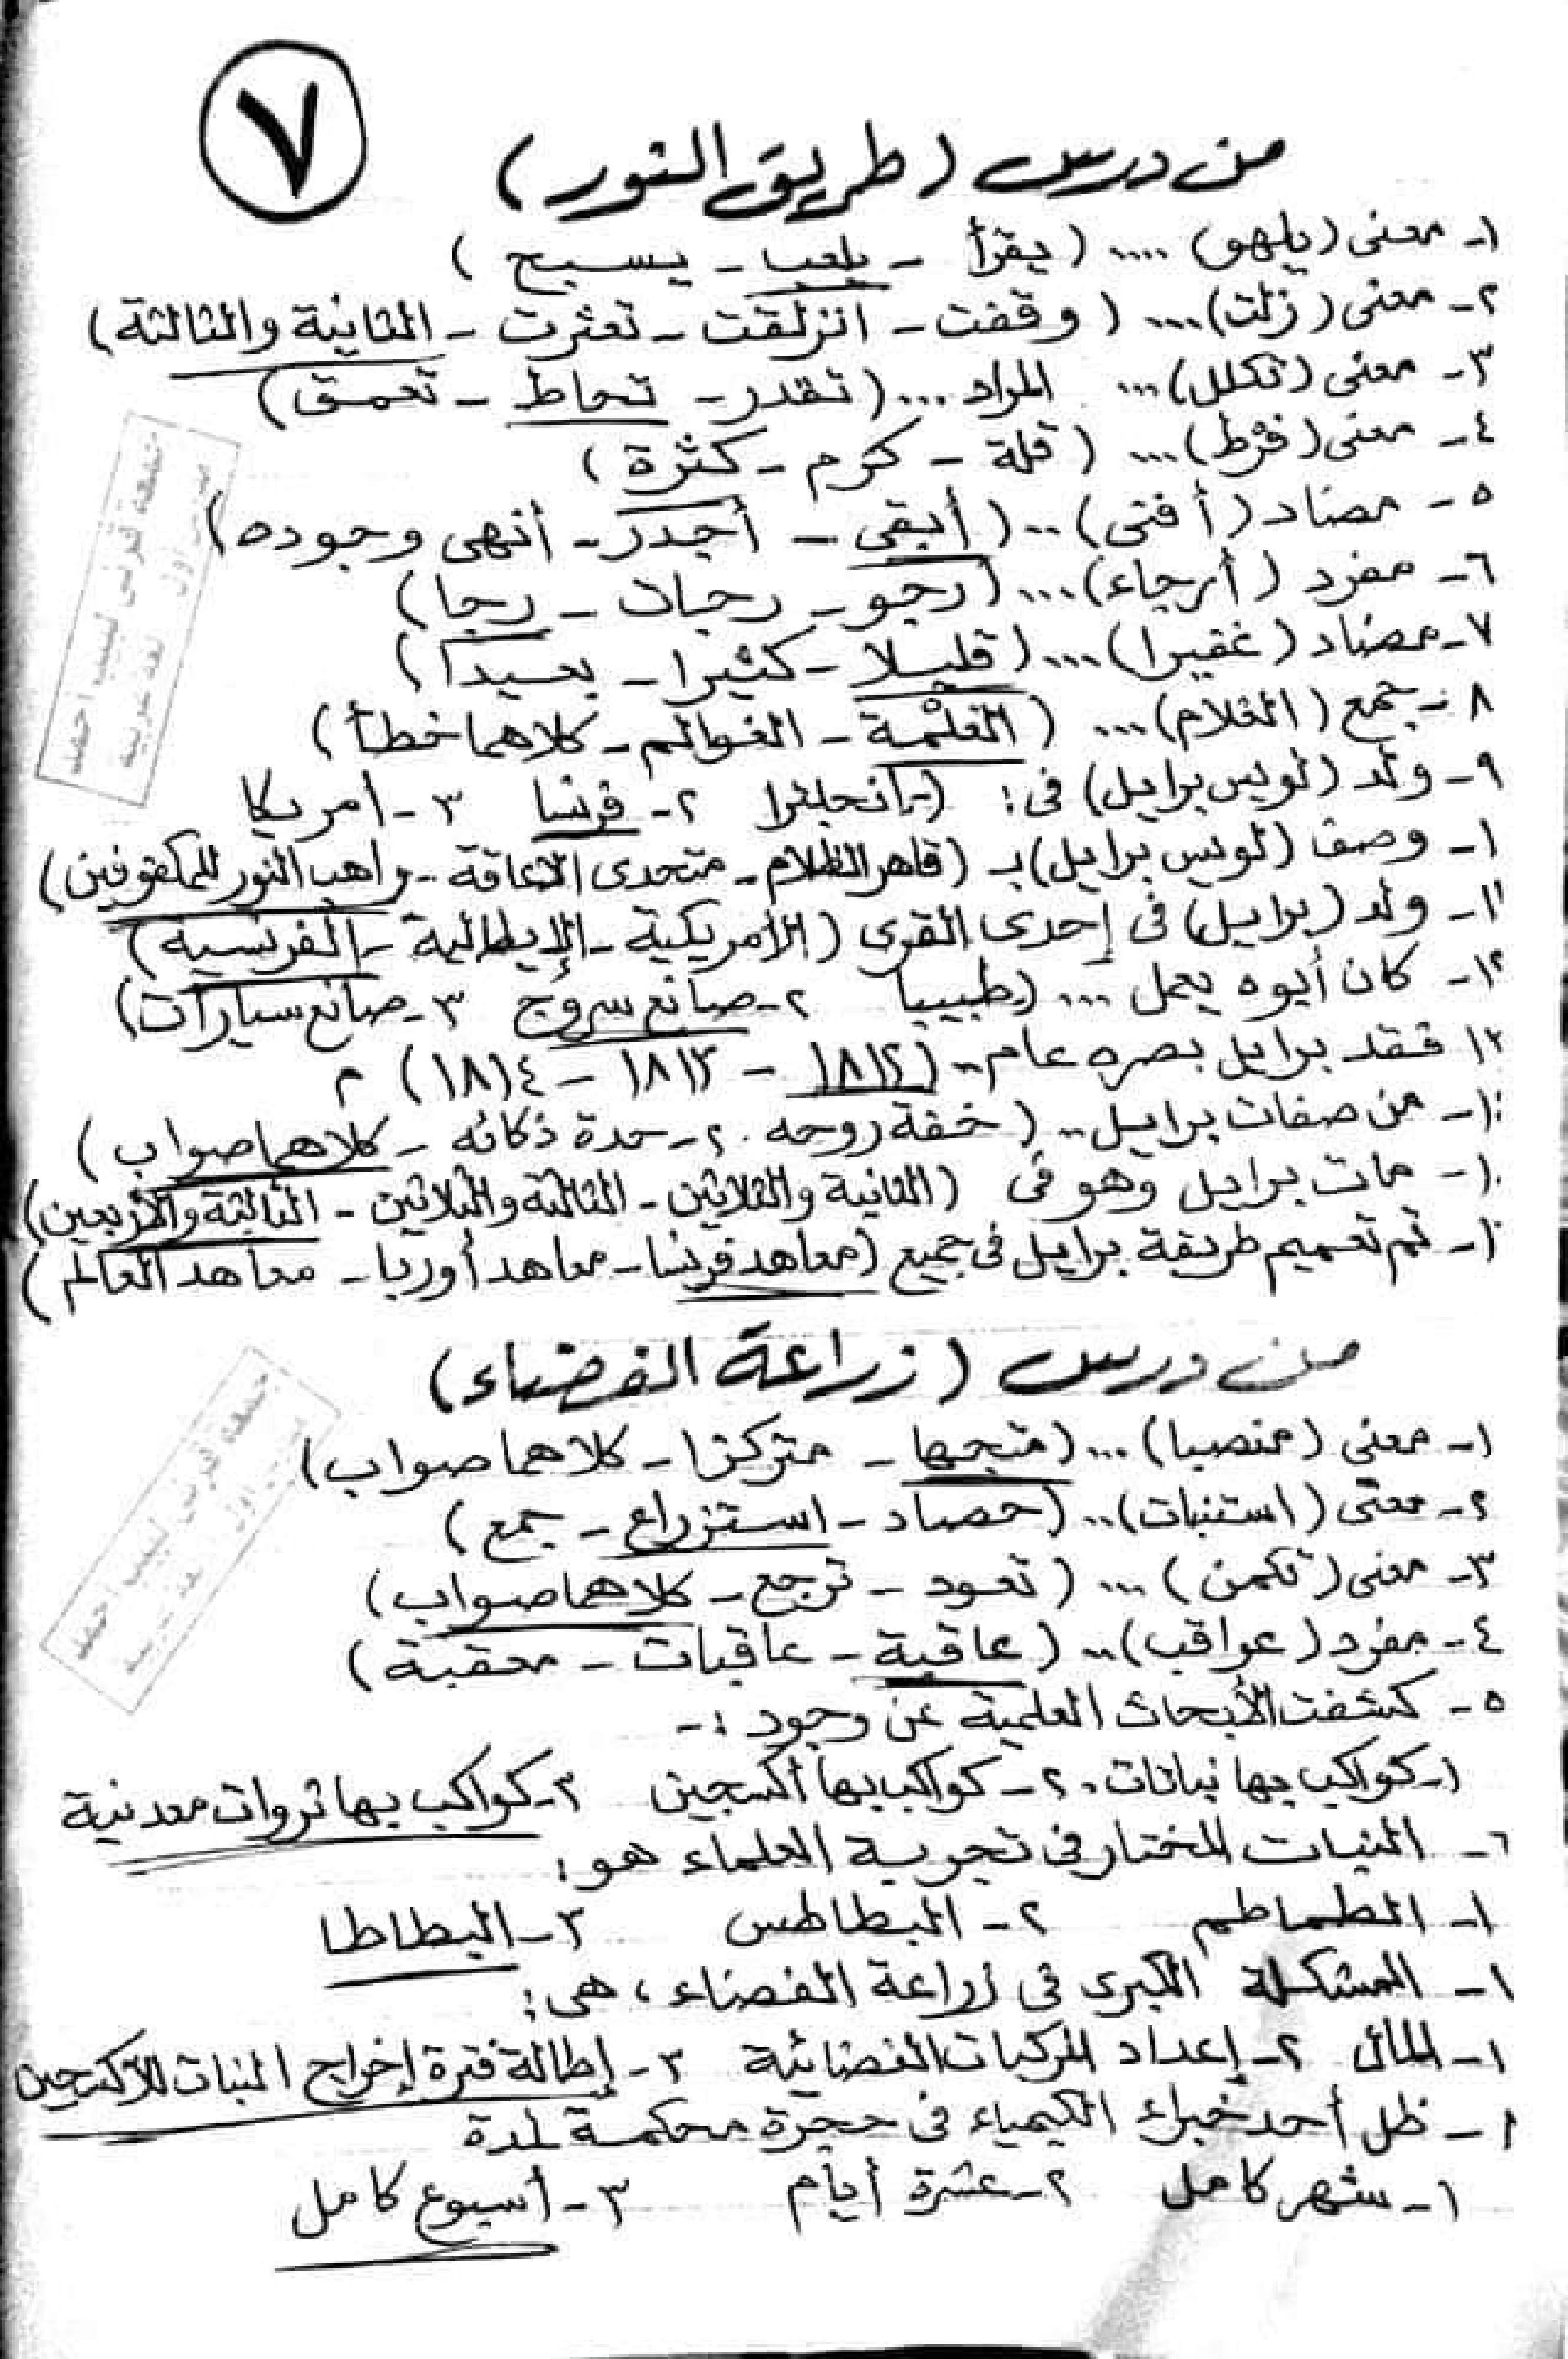 ٧
من درس (طريق النور)
١- معنى (يلهو) .... (يقرأ - يلعب - يسبح)
٢- معنى (زلت) ... (وقفت - انزلقت - تعثرت - الثانية والثالثة)
٣- معنى (تكلل) ... المراد ... (تقدر - تحاط - تعمق)
٤- معنى (فرْط) ... (قلة - كرم - كثرة)
٥- مضاد (أفنى) .. (أبقى - أجدر - أنهى وجوده)
٦- مفرد (أرجاء) ... (رجو - رجات - رجا)
٧- مضاد (غفيرا) ... (قليلا - كثيرا - بعيدا)
٨- جمع (الغلام) ... (الغلْمة - الغوالم - كلاهما خطأ)
٩- ولد (لويس برايل) فى: (١- انجلترا ٢- فرنسا ٣- أمريكا
١- وصف (لويس برايل) بـ (قاهر الظلام - متحدى الاعاقة - واهب النور للمكفوفين)
١١- ولد (برايل) فى إحدى القرى (الأمريكية - الإيطالية - الفرنسية)
١٢- كان أبوه يعمل ... (طبيبا ٢- صانع سروج ٣- صانع سيارات)
١٣ فقد برايل بصره عام .. (١٨١٢ - ١٨١٣ - ١٨١٤) م
١- من صفات برايل .. (خفة روحه ٢- حدة ذكائه - كلاهما صواب)
١- مات برايل وهو فى (الثانية والثلاثين - الثالثة والثلاثين - الثالثة والأربعين)
١- تم تعميم طريقة برايل فى جميع (معاهد فرنسا - معاهد أوربا - معاهد العالم)
من درس (زراعة الفضاء)
١- معنى (منصبا) ... (متجها - متركزا - كلاهما صواب)
٢- معنى (استنبات) .. (حصاد - استزراع - جمع)
٣- معنى (تكمن) ... (تعود - ترجع - كلاهما صواب)
٤- مفرد (عواقب) .. (عاقبة - عاقبات - معقبة)
٥- كشفت الأبحاث العلمية عن وجود :-
١- كواكب بها نباتات ٢- كواكب بها أكسجين ٣- كواكب بها ثروات معدنية
٦- النبات المختار فى تجربة العلماء هو:
١- الطماطم ٢- البطاطس ٣- البطاطا
١- المشكلة الكبرى فى زراعة الفضاء ، هى:
١- المال ٢- إعداد المركبات الفضائية ٣- إطالة فترة إخراج النبات للأكسجين
١- ظل أحد خبراء الكيمياء فى حجرة محكمة لمدة
١- شهر كامل ٢- عشرة أيام ٣- أسبوع كامل